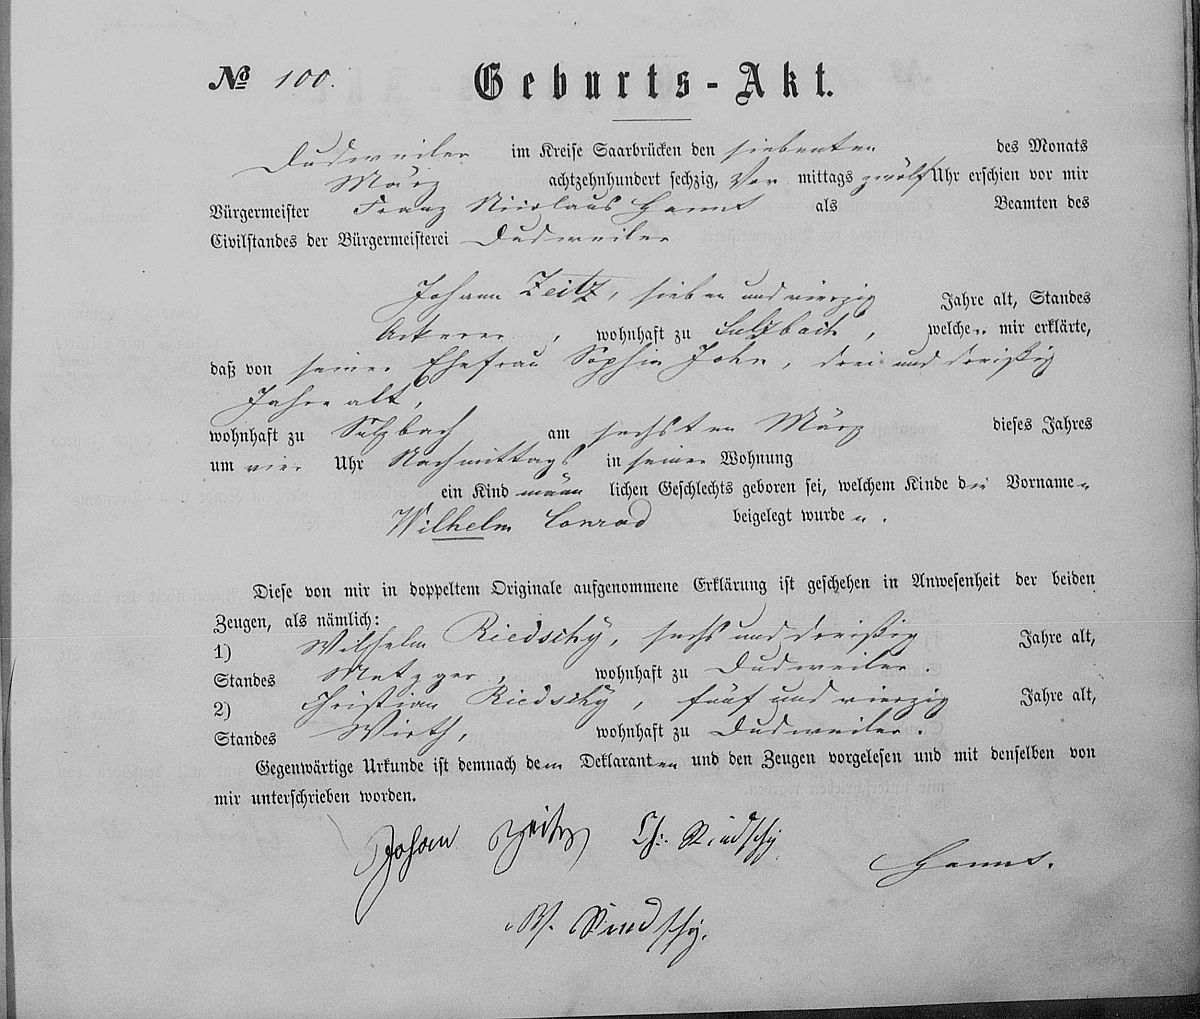 № 100. Geburts-Akt.
Dudweiler im Kreise Saarbrücken den siebenten des Monats
März achtzehnhundert sechzig, Vor mittags zwölf Uhr erschien vor mir
Bürgermeister Franz Nicolaus als Beamten des
Civilstandes der Bürgermeisterei Dudweiler
Johann Zeitz, sieben und vierzig Jahre alt, Standes
Ackerer, wohnhaft zu Sulzbach, welcher mir erklärte,
daß von seiner Ehefrau Sophia John, drei und dreißig
Jahre alt,
wohnhaft zu Sulzbach am sechsten März dieses Jahres
um vier Uhr Nachmittags in seiner Wohnung
ein Kind männlichen Geschlechts geboren sei, welchem Kinde die Vornamen
Wilhelm Conrad beigelegt wurden.
Diese von mir in doppeltem Originale aufgenommene Erklärung ist geschehen in Anwesenheit der beiden
Zeugen, als nämlich:
1) Wilhelm Riedschÿ, sechs und dreißig Jahre alt,
Standes Metzger, wohnhaft zu Dudweiler.
2) Christian Riedschÿ, fünf und vierzig Jahre alt,
Standes Wirth, wohnhaft zu Dudweiler.
Gegenwärtige Urkunde ist demnach dem Deklaranten und den Zeugen vorgelesen und mit denselben von
mir unterschrieben worden.
Johan Zeitz Ch: Riedschy
W. Riedschy.